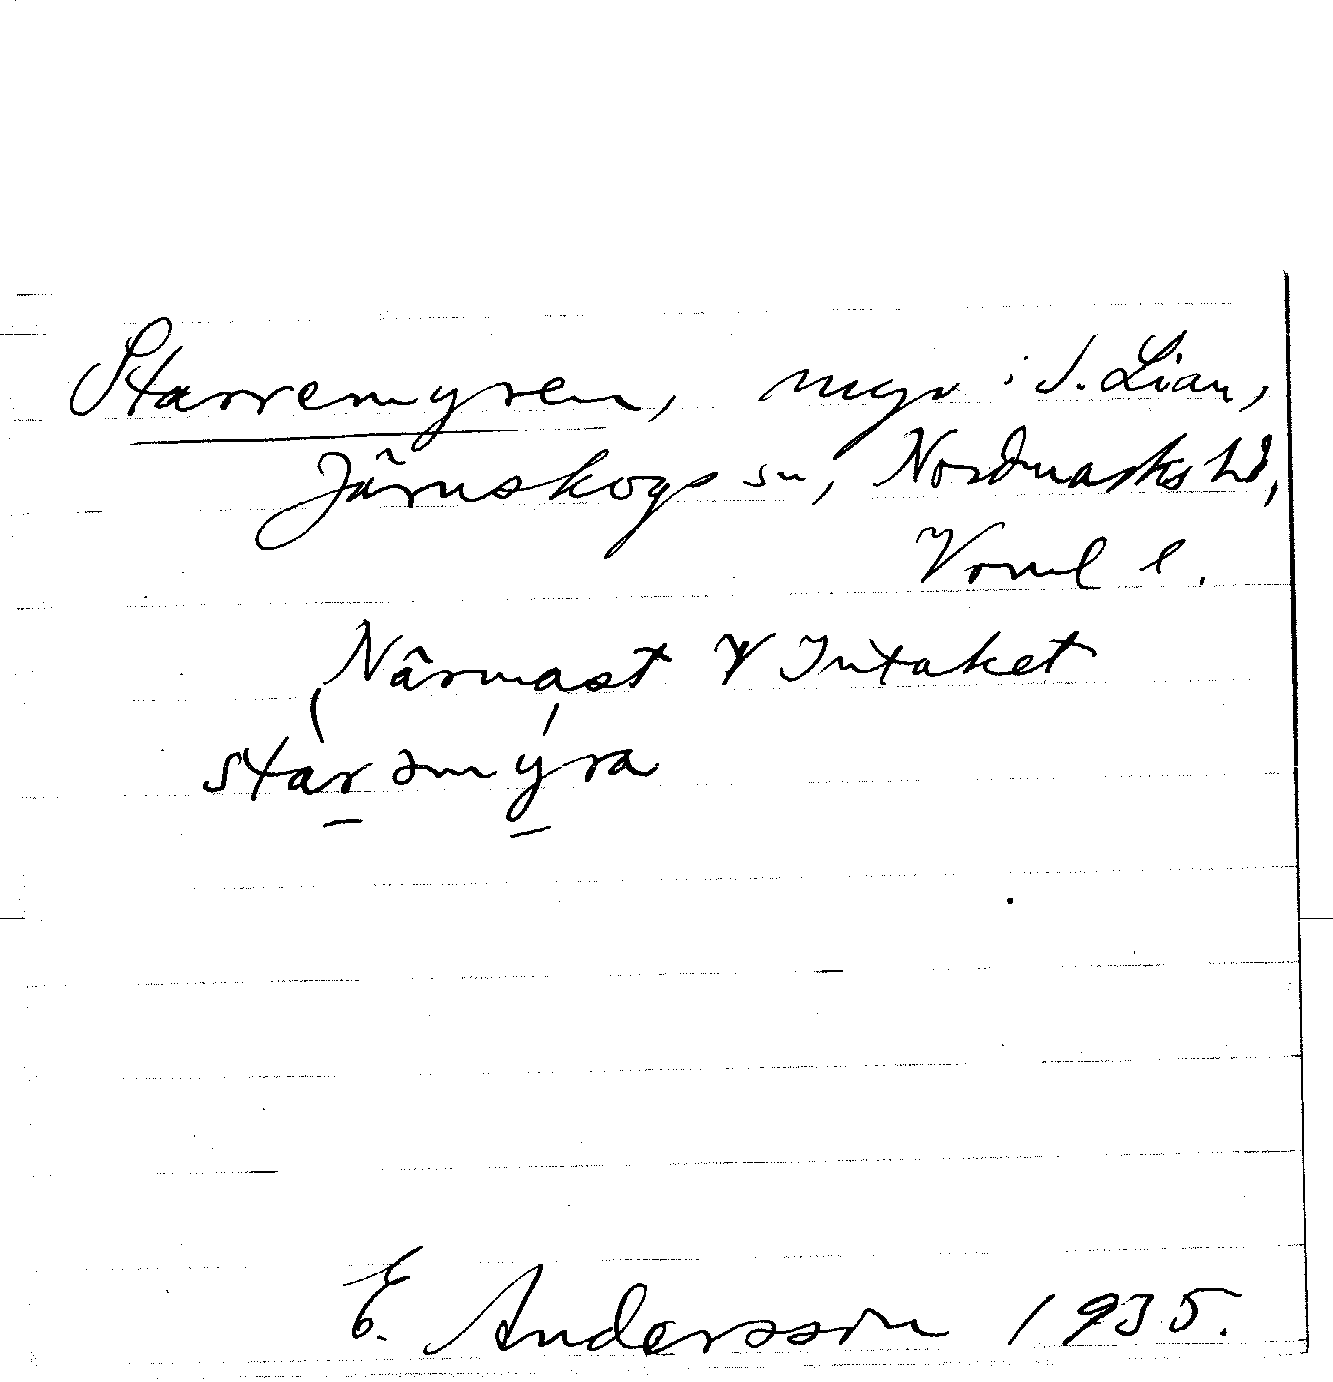 Starremyren, myr i S. Lian,
Järnskogs sn, Nordmarks hd,
Vrml l.
Närmast V Intaket
starəmyra
E. Andersson 1935.